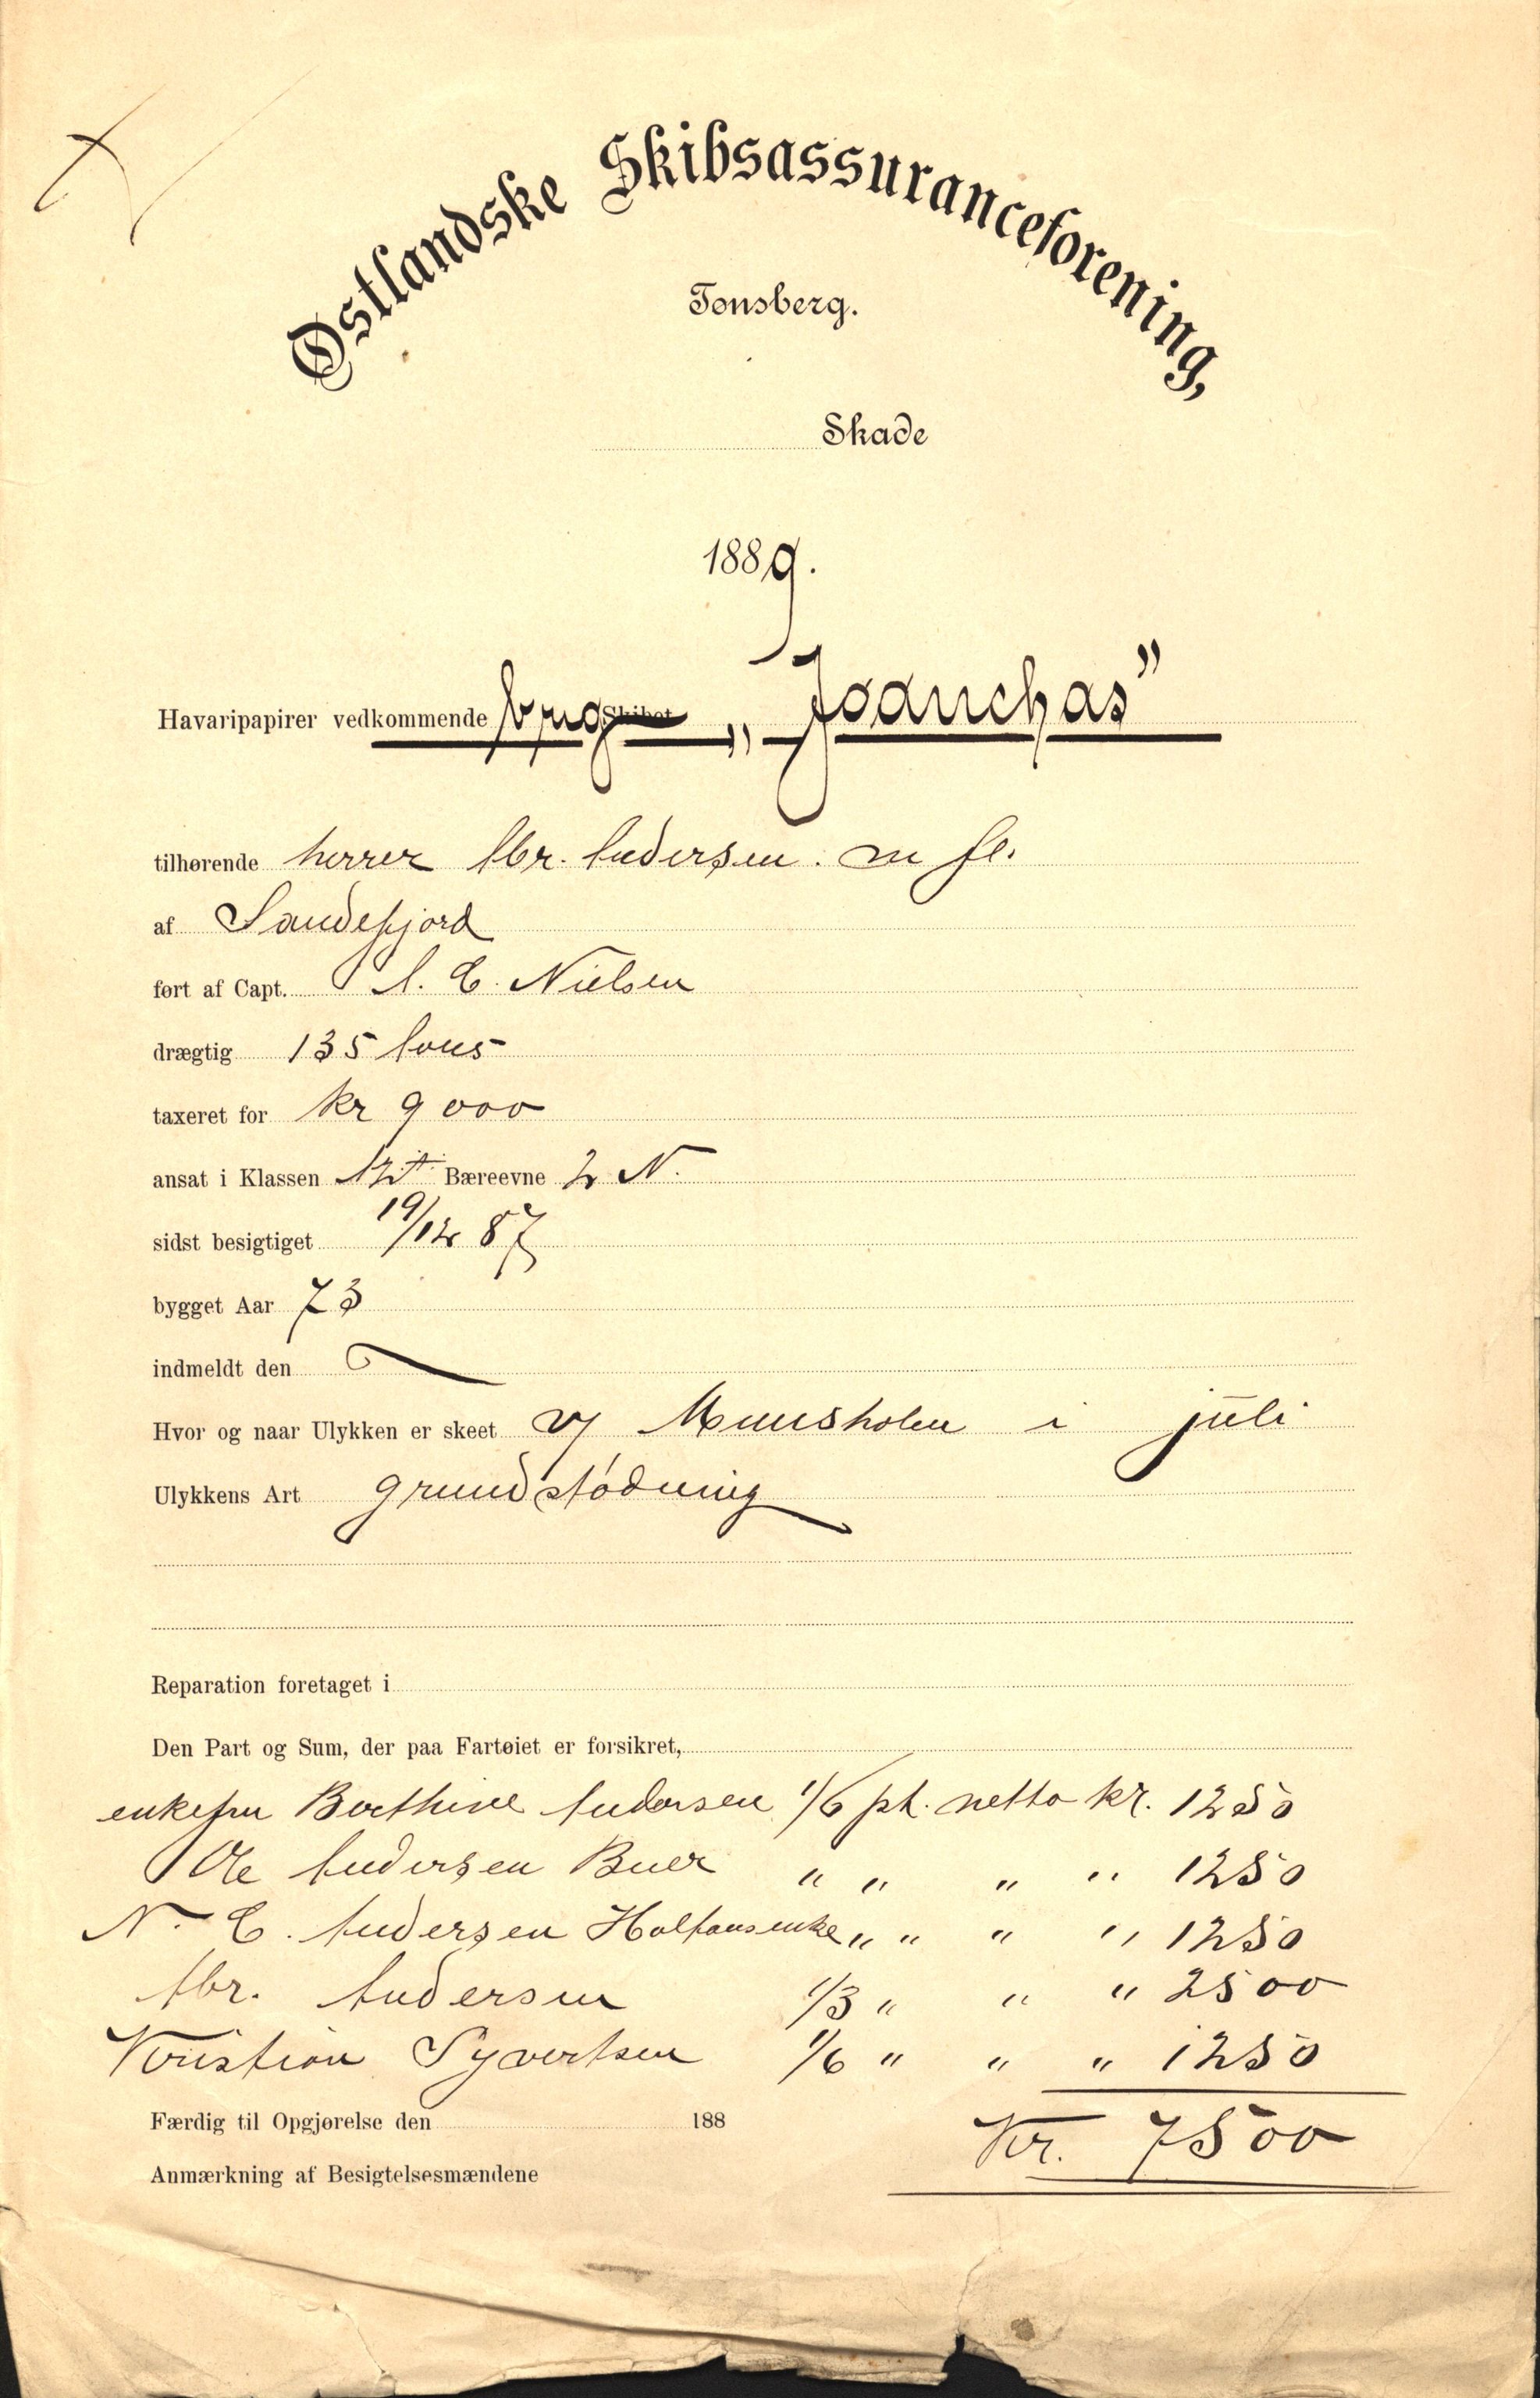 Østlandske Skibsassuranceforening,
Tønsberg.
Skade
1889.
Havaripapirer vedkommende brig Skibet „Joanchas”
tilhørende herrer Abr. Andersen. m fl.
af Sandefjord
ført af Capt. A. C. Nielsen
drægtig 135 tons
taxeret for kr 9000
ansat i Klassen Bæreevne 2 N.
sidst besigtiget 19/12 87
bygget Aar 73
indmeldt den
Hvor og naar Ulykken er skeet v/ Munsholen i juli
Ulykkens Art grundstødning
Reparation foretaget i
Den Part og Sum, der paa Fartøiet er forsikret,
enkefru Berthine Andersen 1/6 pt. netto kr. 1250
Ole Andersen Buer „ „ „ „ 1250
N. C. Andersen Holtans enke „ „ „ „ 1250
Abr. Andersen 1/3 „ „ „ 2500
Kristian Syvertsen 1/6 „ „ „ 1250
Færdig til Opgjørelse den 188
Kr. 7500
Anmærkning af Besigtelsesmændene